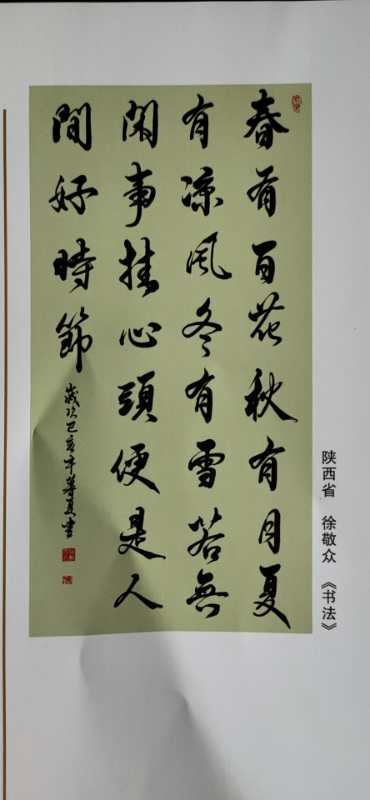 春有百花秋有月夏
有凉風冬有雪若無
閑事挂心頭便是人
間好時節
歲次己亥年夏書
陕西省 徐敬众 《书法》